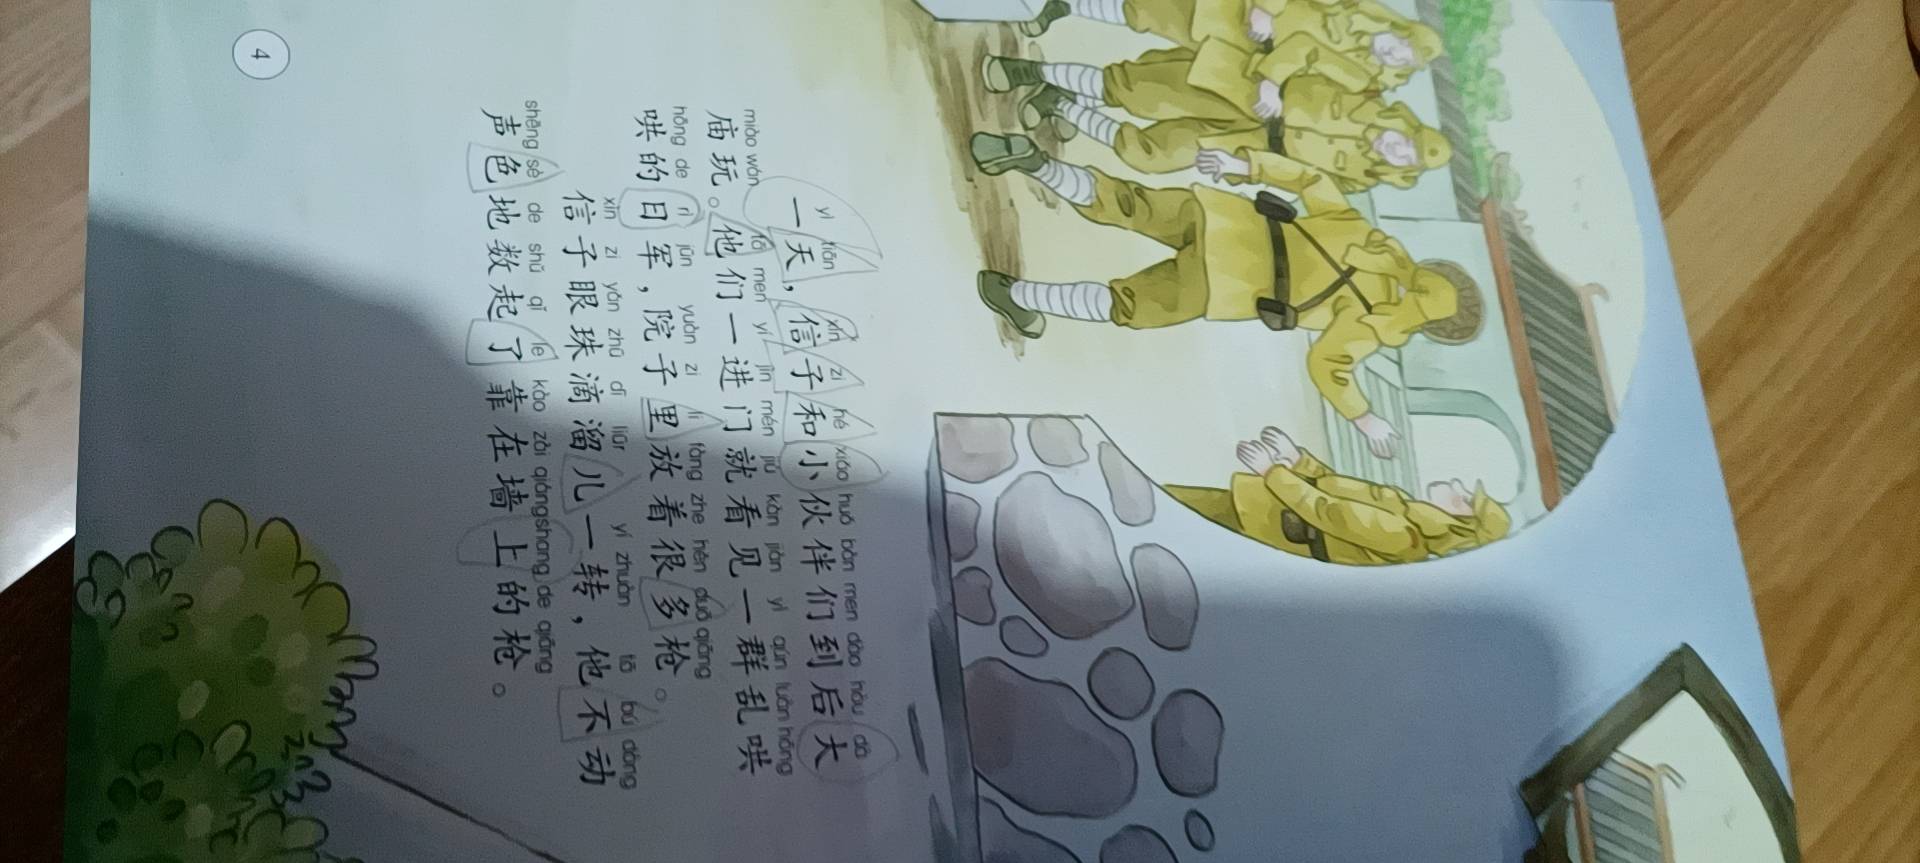 yì tiān xìn zi hé xiǎo huǒ bàn men dào hòu dà
一天，信子和小伙伴们到后大
miào wán tā men yí jìn mén jiù kàn jiàn yì qún luàn hōng
庙玩。他们一进门就看见一群乱哄
hōng de rì jūn yuàn zi lǐ fàng zhe hěn duō qiāng
哄的日军，院子里放着很多枪。
xìn zi yǎn zhū dī liūr yí zhuàn tā bú dòng
信子眼珠滴溜儿一转，他不动
shēng sè de shǔ qǐ le kào zài qiáng shang de qiāng
声色地数起了靠在墙上的枪。
4